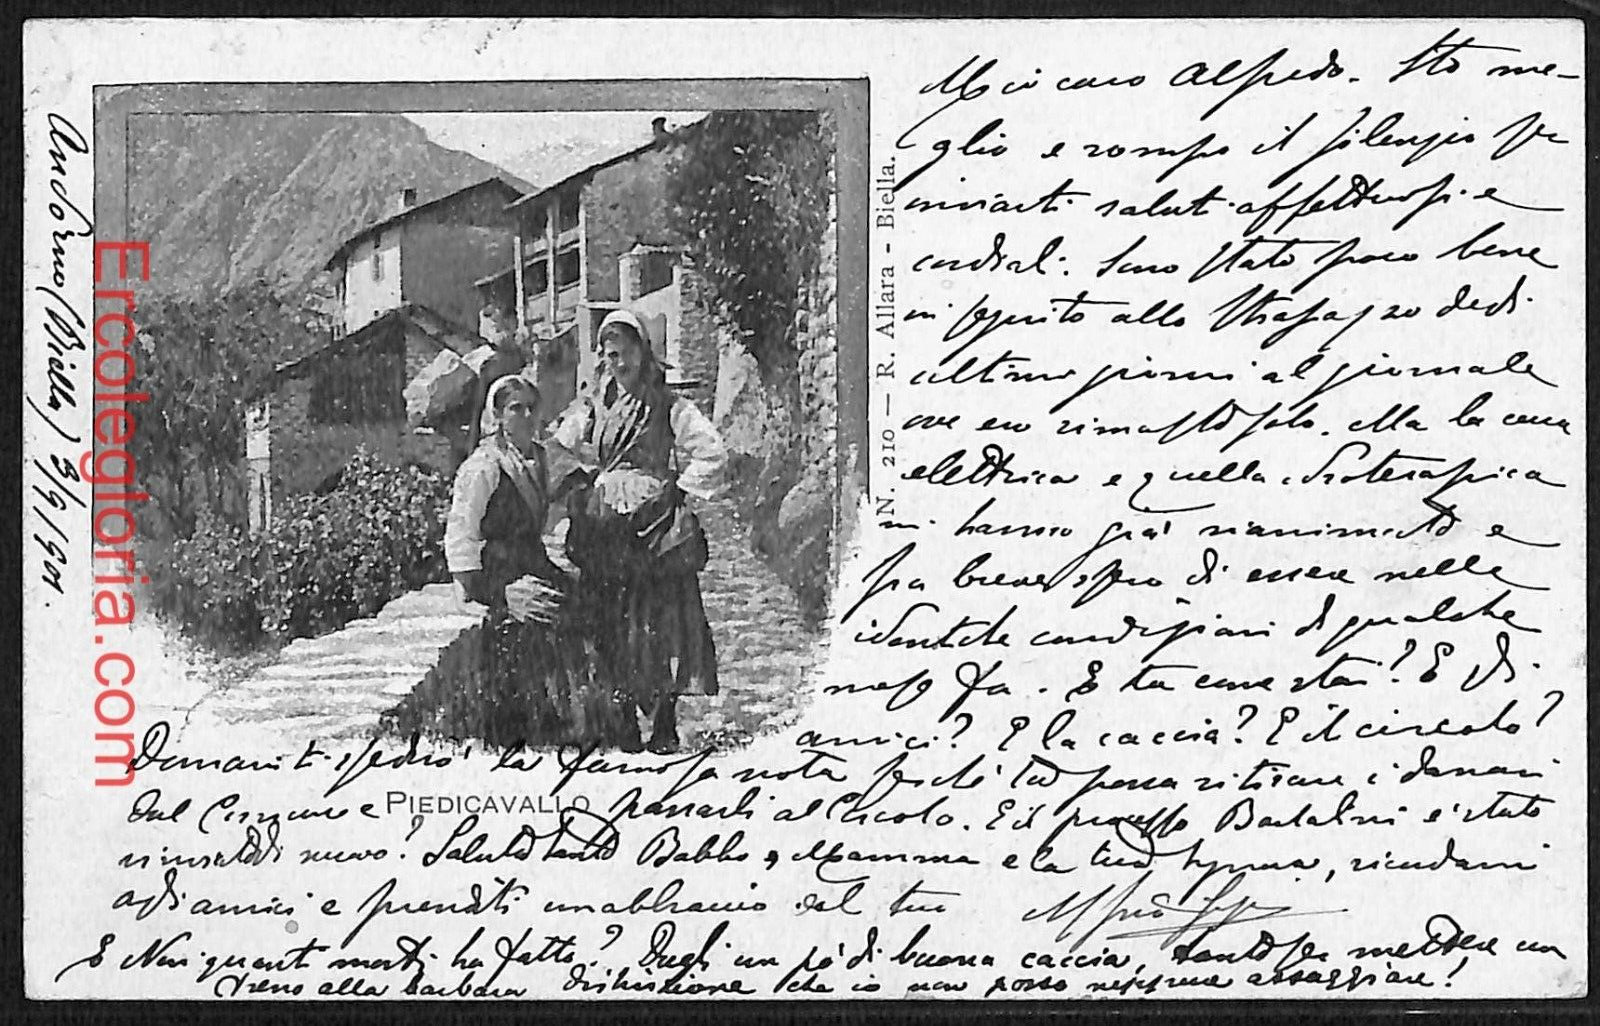 Andorno (Biella) 3/9/901.
Ercolegloria.com
N. 210 — R. Allara - Biella.
Mio caro Alfredo. Sto me-
glio e rompo il silenzio per
inviarti saluti affettuosi e
cordiali. Sono stato poco bene
in seguito allo strapazzo degli
ultimi giorni al giornale
ove ero rimasto solo. Ma la cura
elettrica e quella idroterapica
mi hanno già rianimato e
fra breve spero di essere nelle
identiche condizioni di qualche
mese fa. E tu come stai? E gli
amici? E la caccia? E il circolo?
Domani ti spedirò la famosa nota perché tu possa ritirare i danari
dal Comune e passarli al Circolo. E il processo Bartalini è stato
rinviato di nuovo? Saluta tanto Babbo, Mamma e la tua, ricordami
agli amici e prenditi un abbraccio dal tuo
PIEDICAVALLO
E Nani quanti morti ha fatto? Dagli un pò di buona caccia, tanto per mettere un
freno alla barbara distruzione che io non posso neppure assaggiare!